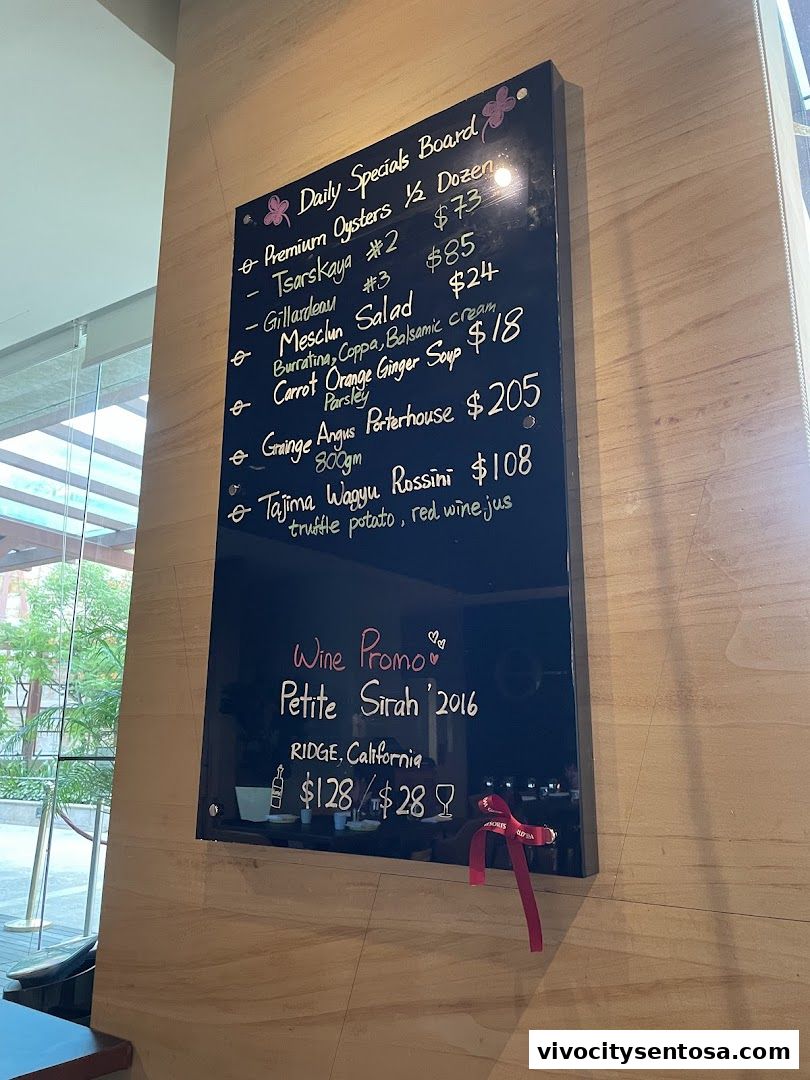 Daily Specials Board
Premium Oysters 1/2 Dozen
- Tsarskaya #2 $73
- Gillardeau #3 $85
Mesclun Salad $24
Burratina, Coppa, Balsamic cream
Carrot Orange Ginger Soup $18
Parsley
Grainge Angus Porterhouse $205
800gm
Tajima Wagyu Rossini $108
truffle potato, red wine jus
Wine Promo
Petite Sirah '2016
RIDGE, California
$128 / $28
vivocitysentosa.com